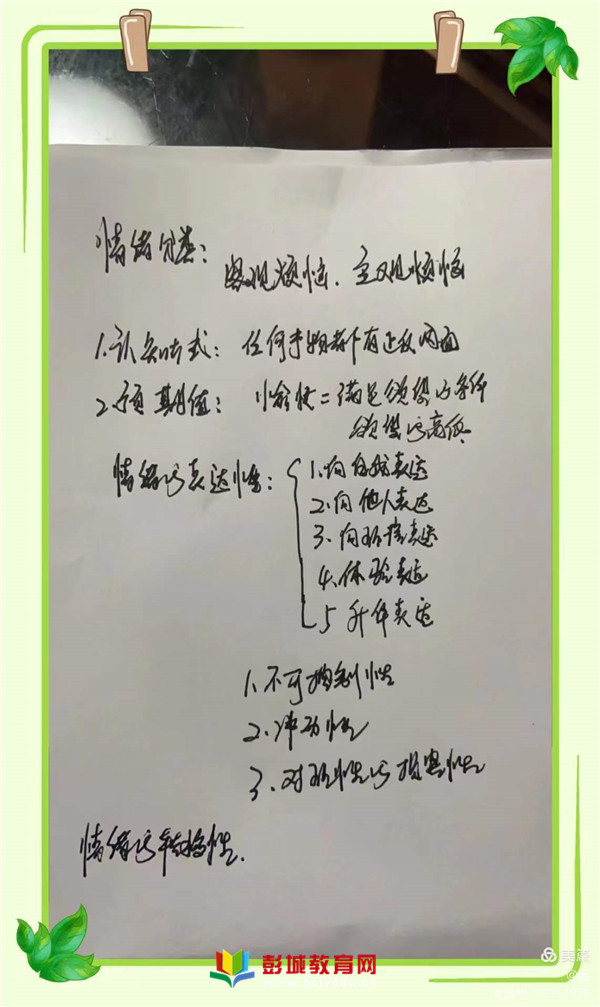 情绪分类:
客观烦恼、主观烦恼
1.认知方式:任何事物都有正反两面
2.预期值:愉快=满足欲望的条件
欲望的高低
情绪的表达性:
1.向自我表达
2.向他人表达
3.向环境表达
4.体验表达
5 升华表达
1.不可控制性
2.冲动性
3.对 性的损害性
情绪的转换性.
彭城教育网
美篇